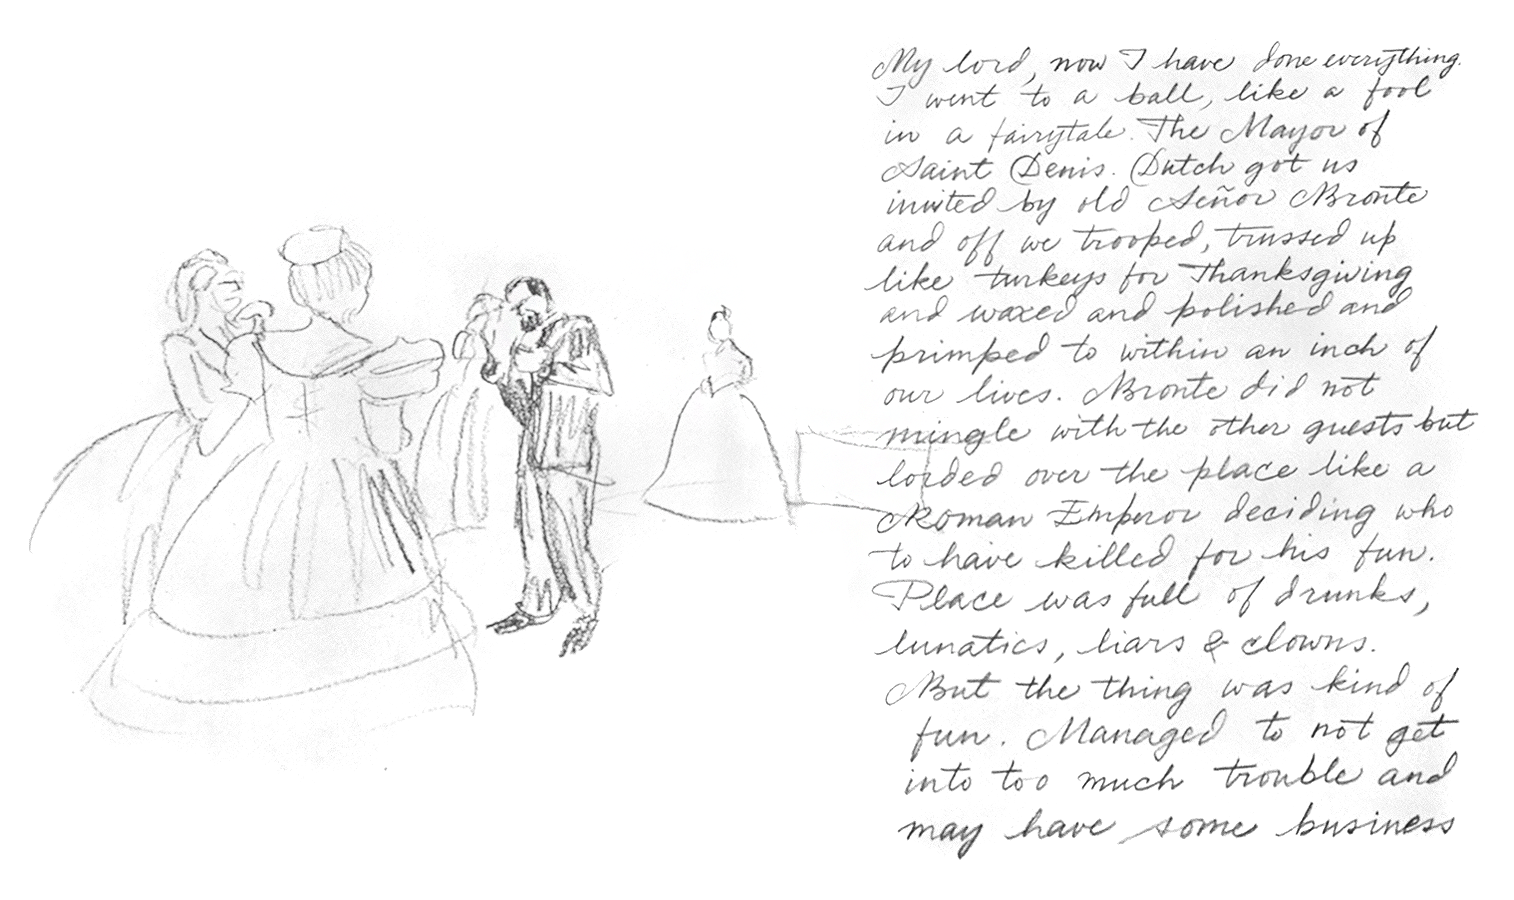 My lord, now I have done everything.
I went to a ball, like a fool
in a fairytale. The Mayor of
Saint Denis. Dutch got us
invited by old Señor Bronte
and off we trooped, trussed up
like turkeys for Thanksgiving
and waxed and polished and
primped to within an inch of
our lives. Bronte did not
mingle with the other guests but
lorded over the place like a
Roman Emperor deciding who
to have killed for his fun.
Place was full of drunks,
lunatics, liars & clowns.
But the thing was kind of
fun. Managed to not get
into too much trouble and
may have some business